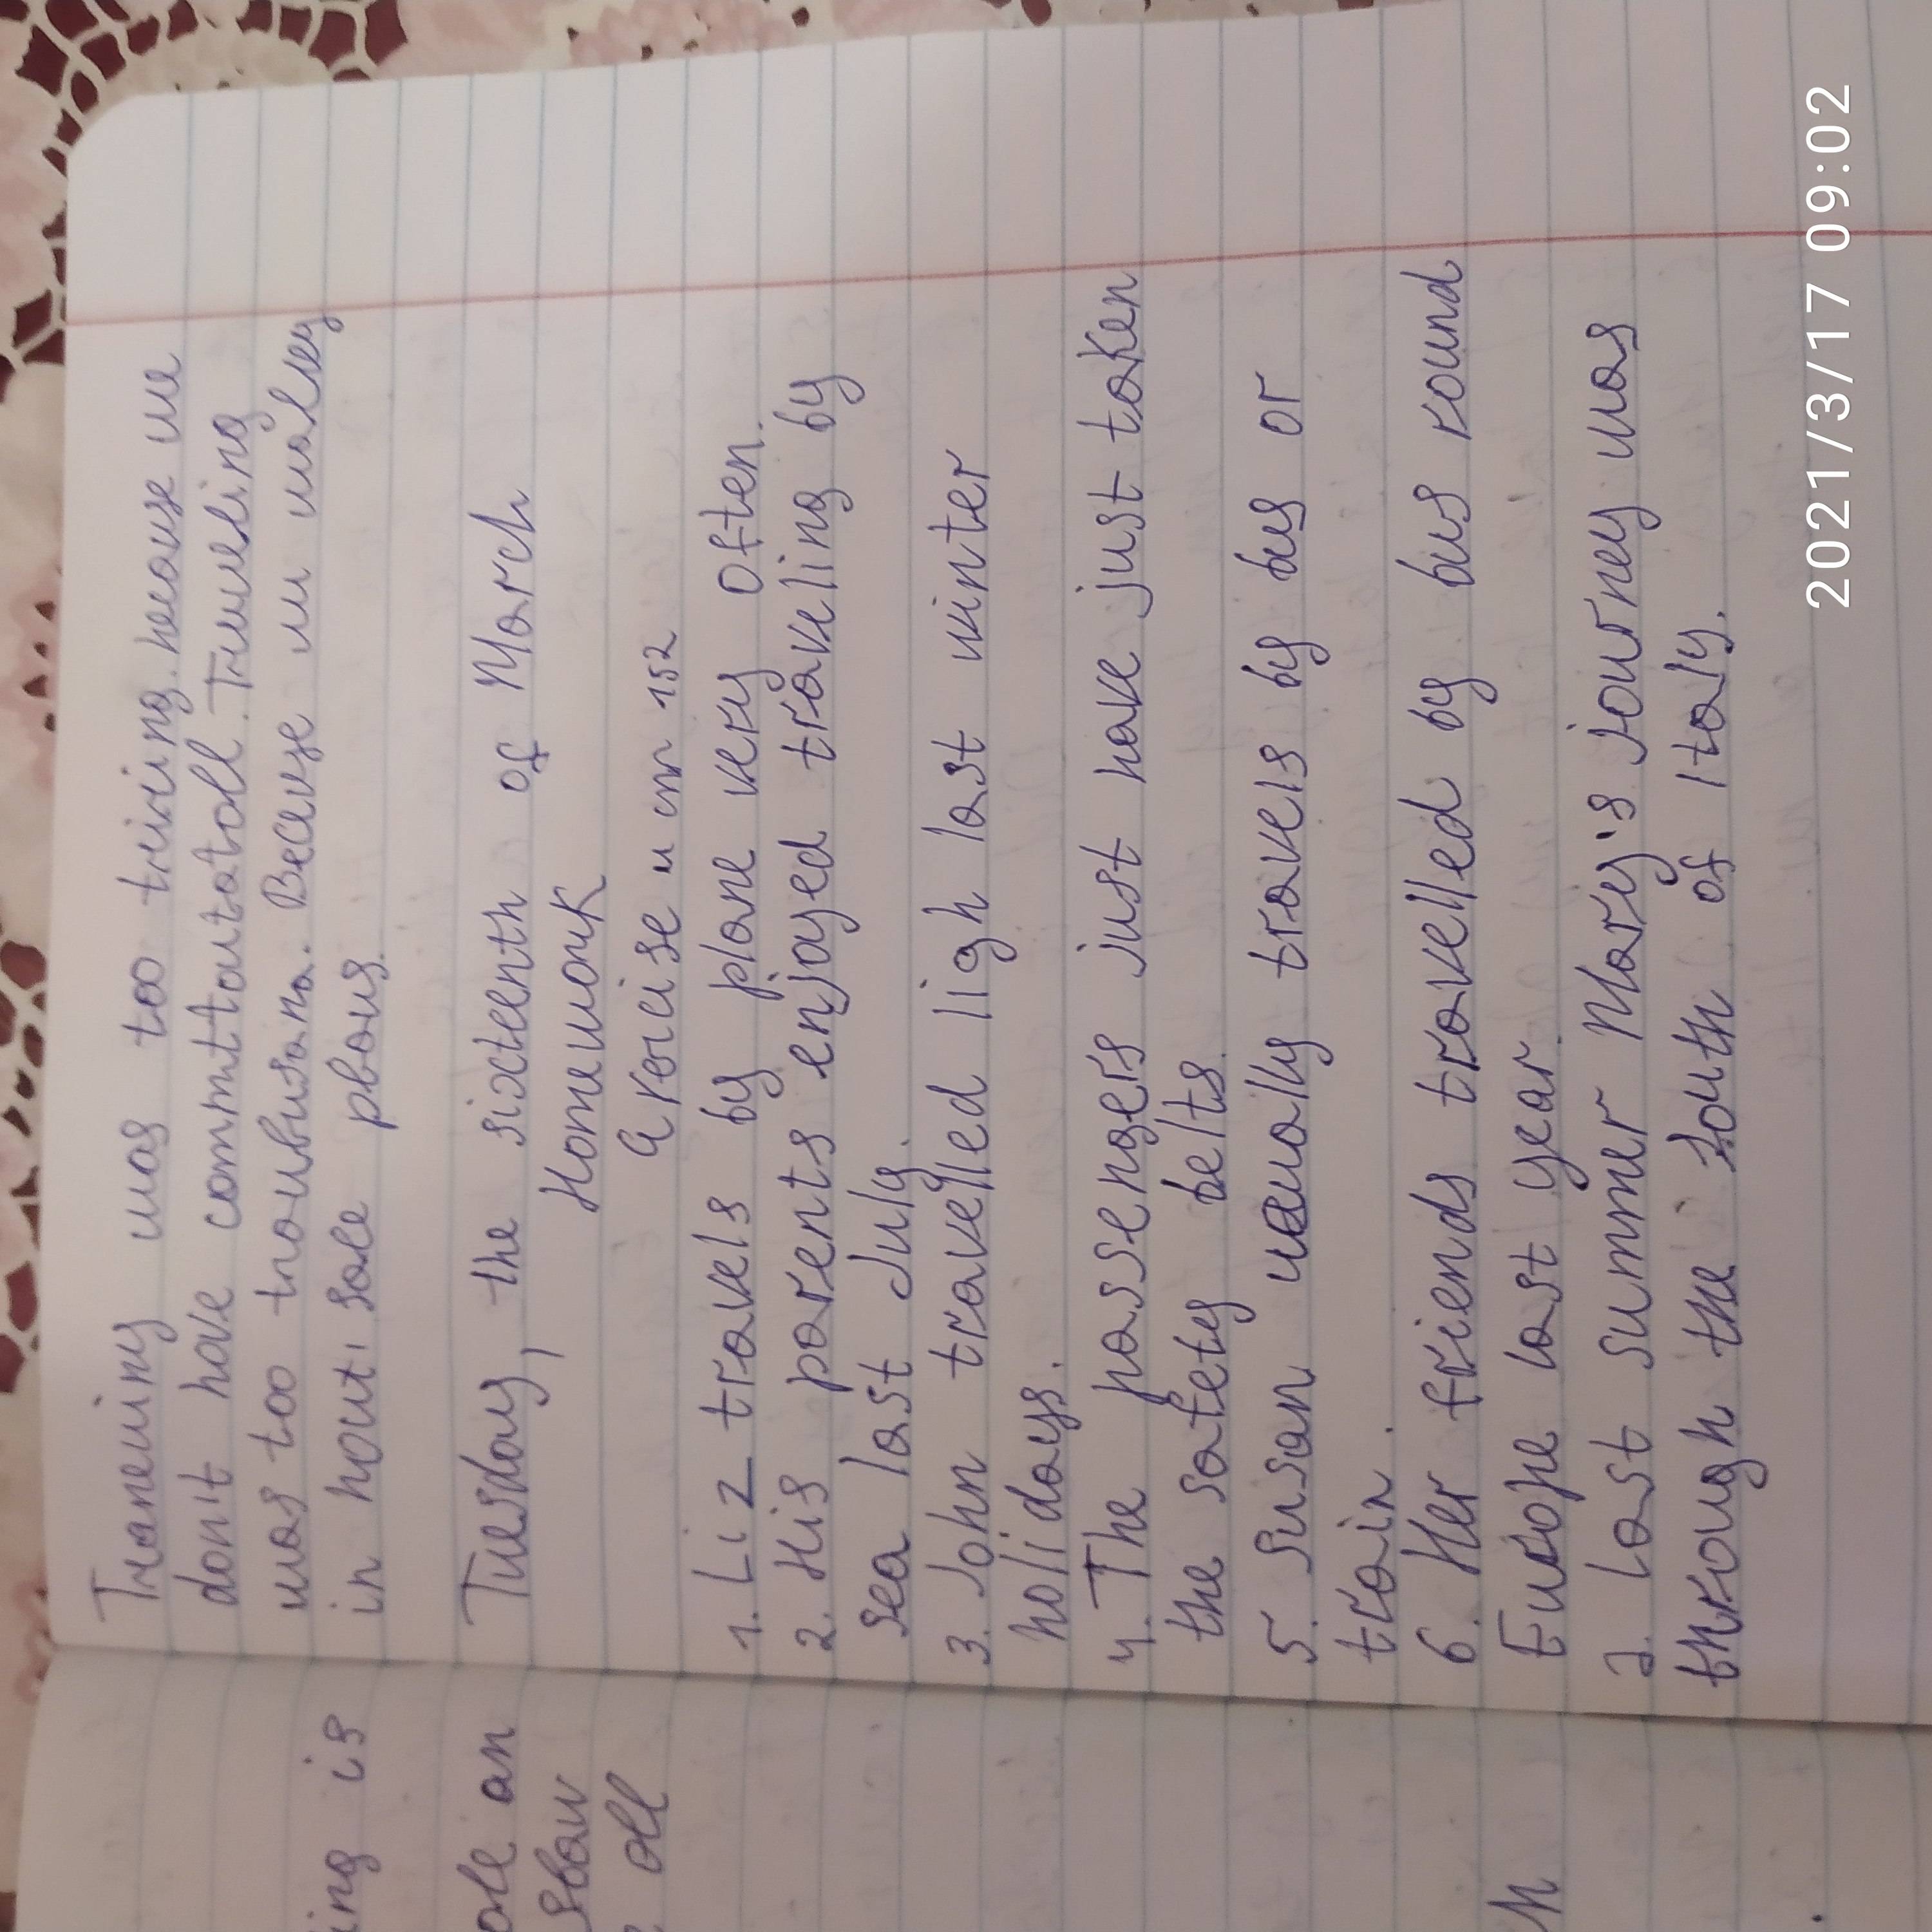 was too tricing. because we
don't have
was too Because in
in
Tuesday, the sixteenth of March
Homework
152
1. Liz travels by plane very often.
2. His parents enjoyed traveling by
sea last July.
3. John travelled ligh last winter
holidays.
4. The passengers just have just taken
the safety belts.
5. Susan usually travels by bus or
train.
6. Her friends travelled by bus round
Europe last year.
7. Last summer Mary's journey was
through the South of Italy.
ing is
an
all
2021/3/17 09:02